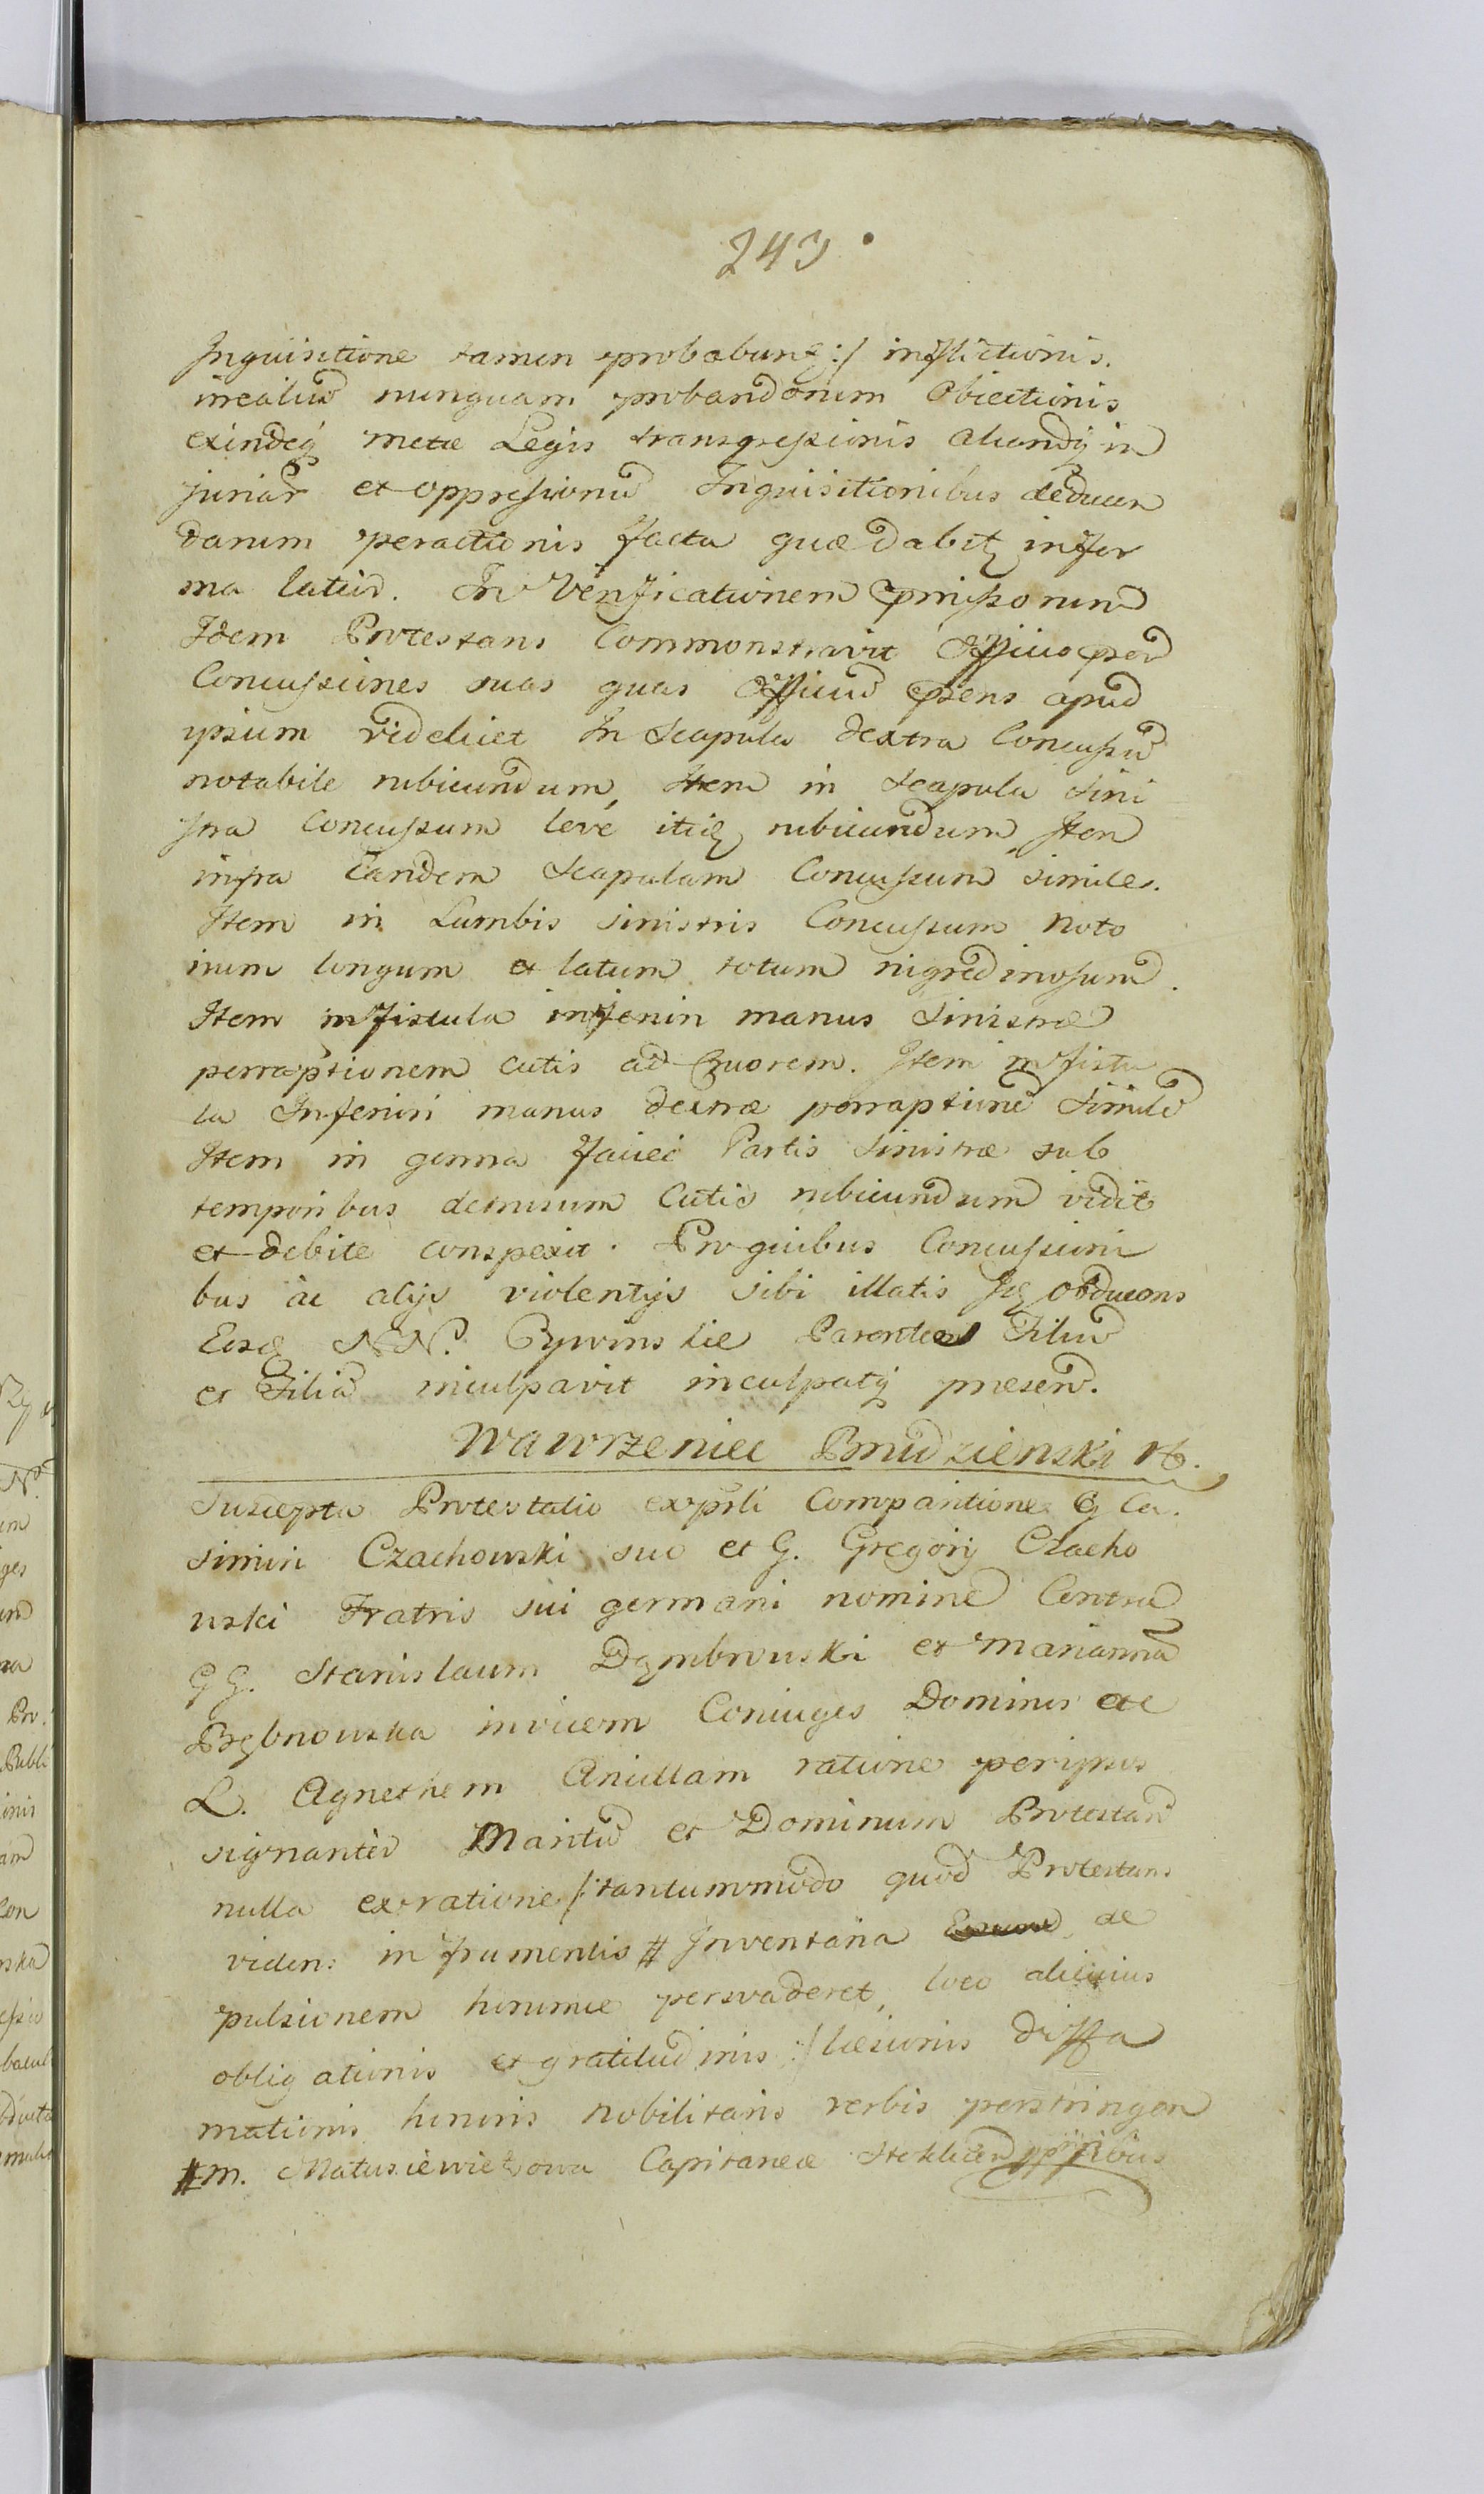 243.
Inquisitione tamen probabunt :/ inflictionis.
nunquam probandorum Obiectionis
exindeq metae Legis transgressionis aliundq in
juriar et oppressionu Inquisitionibus deducen
darum peractionis facta quae dabit in for
ma latiud. In Verificationem pmissorum
Idem Protestans Commonstravit Officio
Concussiones suas quas Officiu psens apud
ipsum videlicet In Scapula dextra Concussu
notabile rubicundum, Item in Scapula Sini
stra Concussum leve itid rubicundum, Item
infra eandem Scapulam Concussum simile.
Item in Lumbis sinistris Concussum noto
rium longum et latum totum nigredinosum.
Item in fistula inferiori manus Sinistrae
perraptionem cutis ad Cruorem. Item in fistu
la Inferiori manus dextrae perraptione Simile
Item in genna faciei Partis Sinistrae sub
temporibus detrusum Cutis rubicundum vidit
et debite conspexit. Pro quibus Concussioni
bus ac alijs violentijs sibi illatis se obducens
Eosd NN. Rywinskie Parentes Filiu
et Filia inculpavit inculpatq presen.
Wawrzeniec Brudzienski
Suscepta Protestatio ex psli Comparitione G Ca.
simiri Czachowski suo et G. Gregorij Czacho
wski Fratris sui germani nomine Contra
GG. Stanislaum Dąmbrowski et Marianna
invicem Coniuges Dominos ac
L. Agnethem Ancillam ratione per ipsos
signanter Maritu et Dominum Protestan
nulla ex ratione /: tantummodo quod Protestans
videns in frumentis # Inventaria de
pulsionem persvaderet, loco alicuius
obligationis et gratitudinis :/ laesionis diffa
mationis honoris nobilitaris verbis perstringen
# M. Matusiewiczowa Capitaneae Steklicen